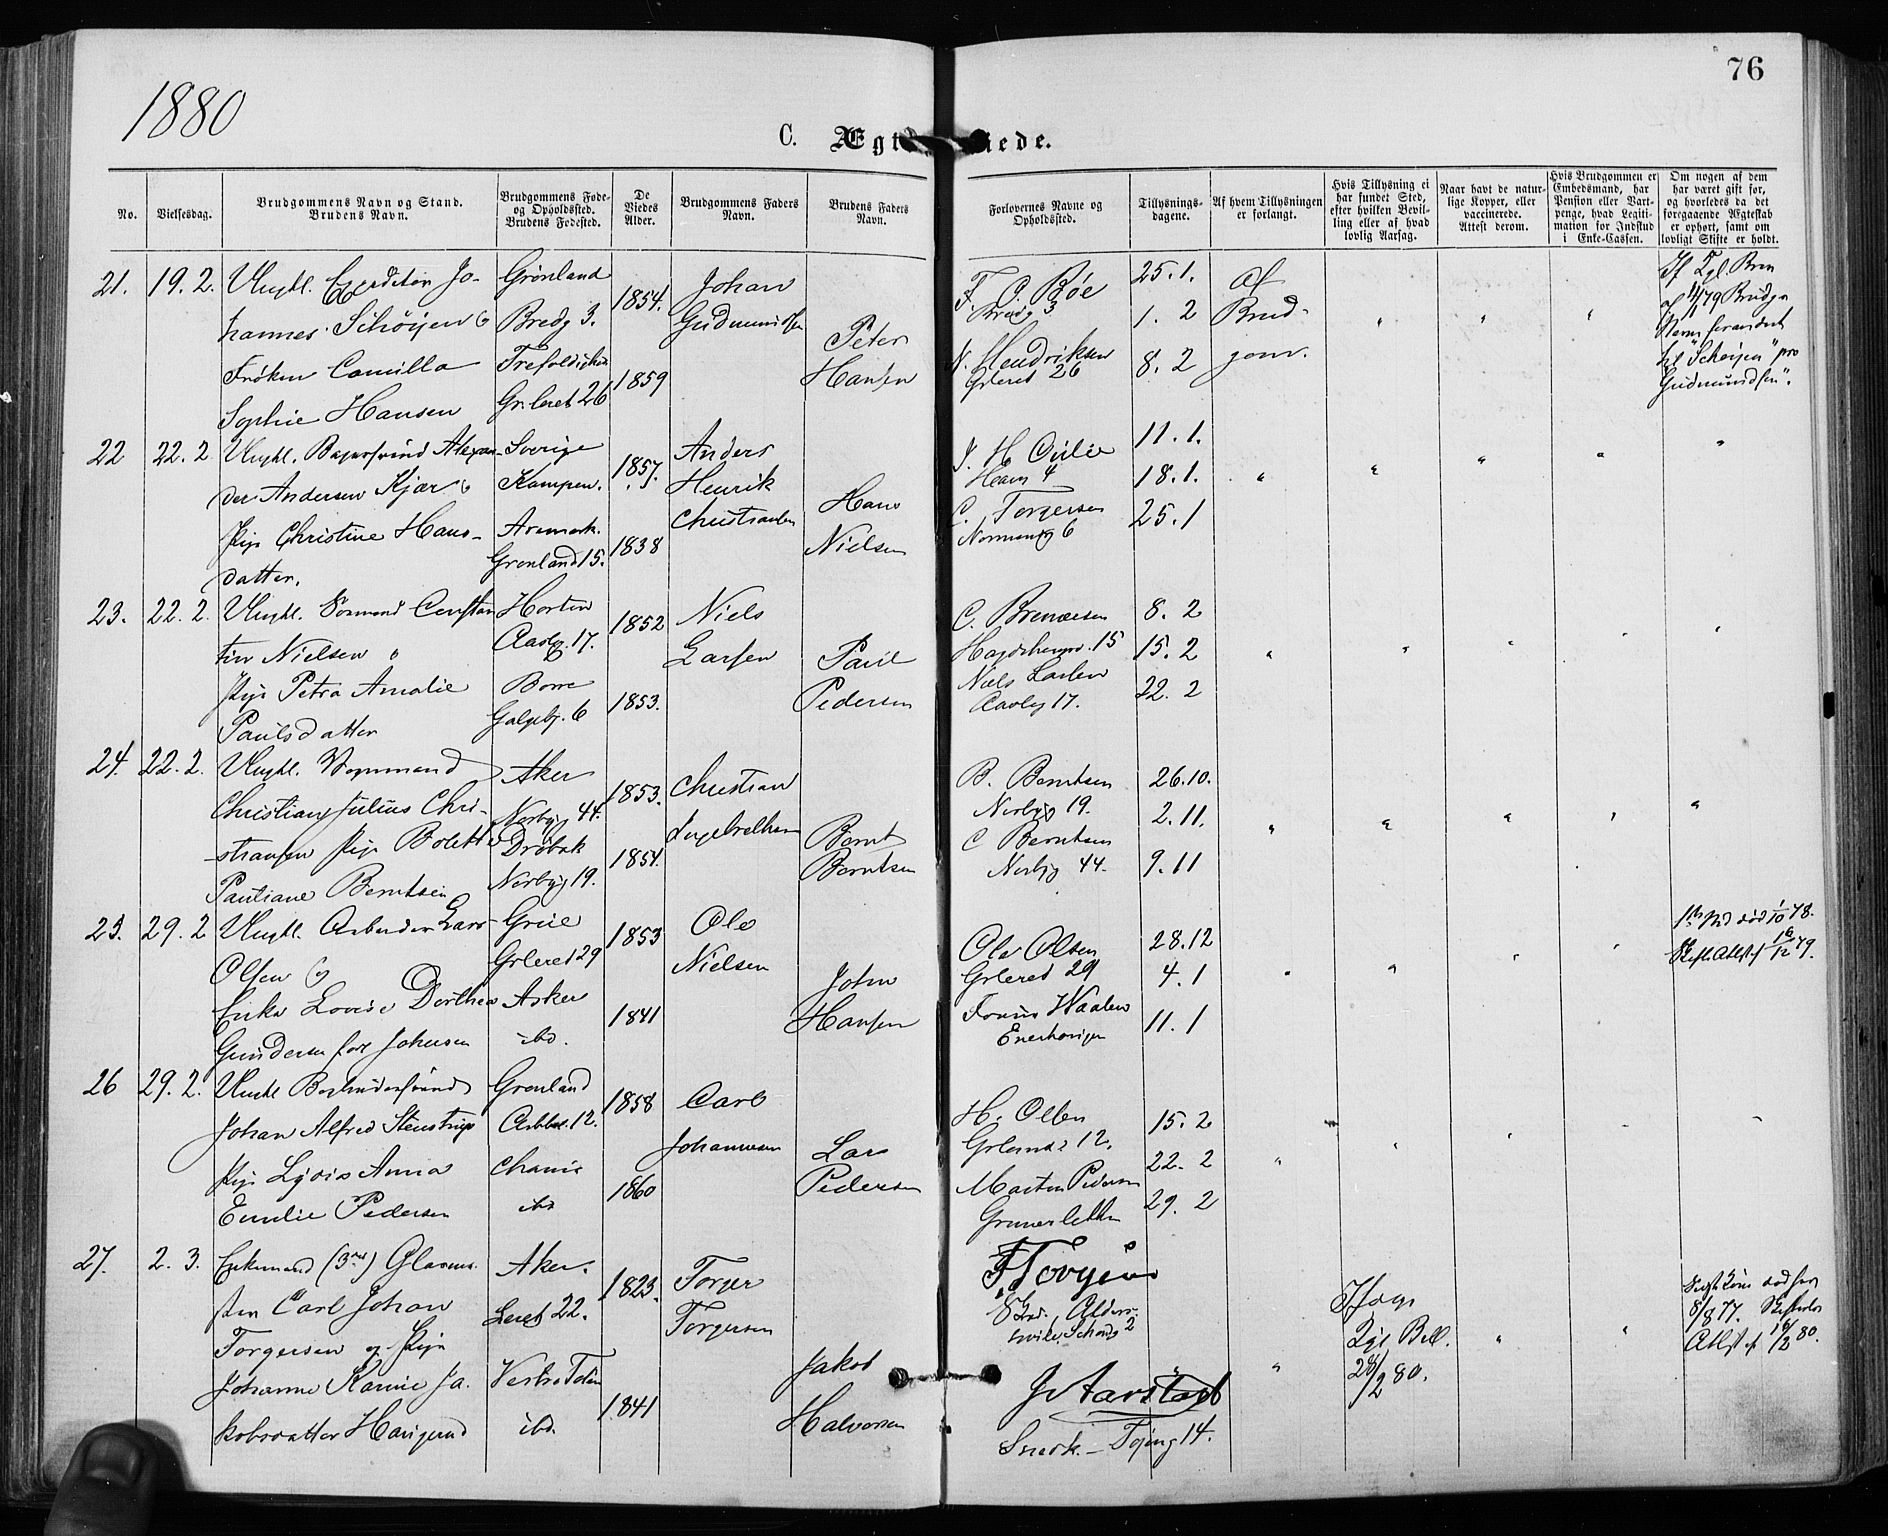 1880
76
C. Ægt iede.
No.
Vielsesdag.
Brudgommens Navn og Stand.
Brudens Navn.
Brudgommens Føde-
og Opholdssted.
Brudens Fødested.
De
Viedes
Alder.
Brudgommens Faders
Navn.
Brudens Faders
Navn.
Forlovernes Navne og
Opholdssted.
Tillysnings-
dagene.
Af hvem Tillysningen
er forlangt.
Hvis Tillysning ei
har fundet Sted,
efter hvilken Bevil-
ling eller af hvad
lovlig Aarsag.
Naar havt de natur-
lige Kopper, eller
vaccinerede.
Attest derom.
Hvis Brudgommen er
Embedsmand, har
Pension eller Vart-
penge, hvad Legiti-
mation for Indskud
i Enke-Cassen.
Om nogen af dem
har været gift før,
og hvorledes da det
foregaaende Ægteskab
er ophørt, samt om
lovligt Skifte er holdt.
21. 19. 2. Ungkl. Expeditør Jo-
hannes Schøyen
Frøken Camilla
Sophie Hansen
Grønland
Bredg 3.
Gr. leret 26
1854.
1859
Johan
Gudmundsen
Peter
Hansen
F. O. Bøe
Bredg 3
N. Hendriksen
Grleret 26
25. 1.
1. 2
8. 2
af
Brud-
gom.
Navn forandret
til "Schøyen" pro
Gudmundsen".
22 22. 2 Ungkl. Bagersvend Alexan-
der Andersen Kjær
Pige Christine Hans-
datter.
Sverige
Kampen.
Aremark.
Grønland 15.
1857.
1838
Anders
Henrik
Christiansen
Hans
Nielsen
C. Torgersen
Normannsg 6
11. 1.
18. 1.
25. 1
23. 22. 2. Ungkl. Sømand Constan
tin Nielsen
Pige Petra Amalie
Paulsdatter
Horten
Aasbg. 17.
Borre
Galgebg. 6
1852
1853.
Niels
Larsen
Paul
Pedersen
Niels Larsen
Aasbg 17.
8. 2
15. 2
22. 2
24. 22. 2. Ungkl. Vognmand
Christian Julius Chri-
stiansen Pige Bolette
Pauliane Berntsen
Aker
Norbyg 44.
Drøbak
Norbyg 19.
1853.
1854.
Christian
Ingebrethsen
Bernt
Berntsen
B. Berntsen
Norbyg 19.
C Berntsen
Norbyg 44.
26. 10.
2. 11.
9. 11
25. 29. 2 Ungkl. Arbeider Lars
Olsen og
Enke Lovise Dorthea
Gundersen født Johnsen
Grue
Grleret 29
Asker
ibd.
1853
1841
Ole
Nielsen
John
Hansen
Ole Olsen
Grleret 29
Enerhaugen
28. 12
4. 1
11. 1
død 1/10 78.
26 29. 2. Ungkl Bogbindersvend
Johan Alfred Stenstrup
Pige Lovise Anna
Emilie Pedersen
Grønland
ibd
1858
1860
Carl
Johannesen
Lars
Pedersen
H. Olsen
Grønland 12.
Martin Pedersen
Grünerløkken
15. 2
22. 2
29. 2
27. 2. 3. Enkemand (3die) Glasme-
ster Carl Johan
Torgersen og Pige
Johanne Karine Ja-
kobsdatter Haugerud
Aker.
Leret 22.
Vestre Toten
ibd.
1823.
1841
Torger
Torgersen
Jakob
Halvorsen
J Aarstad
Snedk.- Tøieng 14.
Ifølge
Kgl. Bell.
28/2 80.